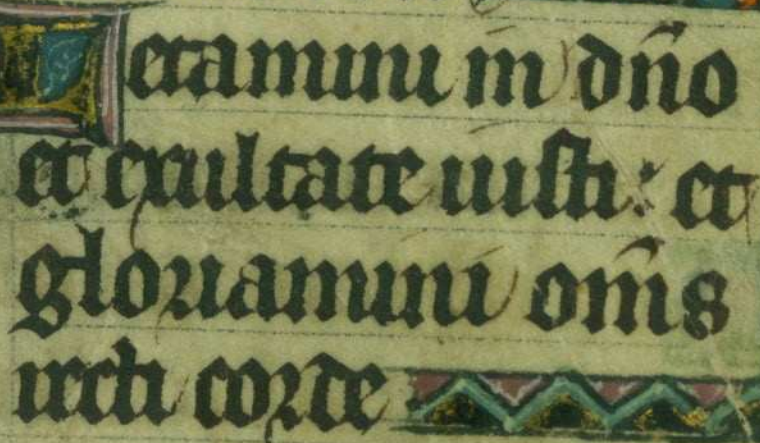 etamini in dño
et exultate iusti: et
gloriamini om̅s
recti corde